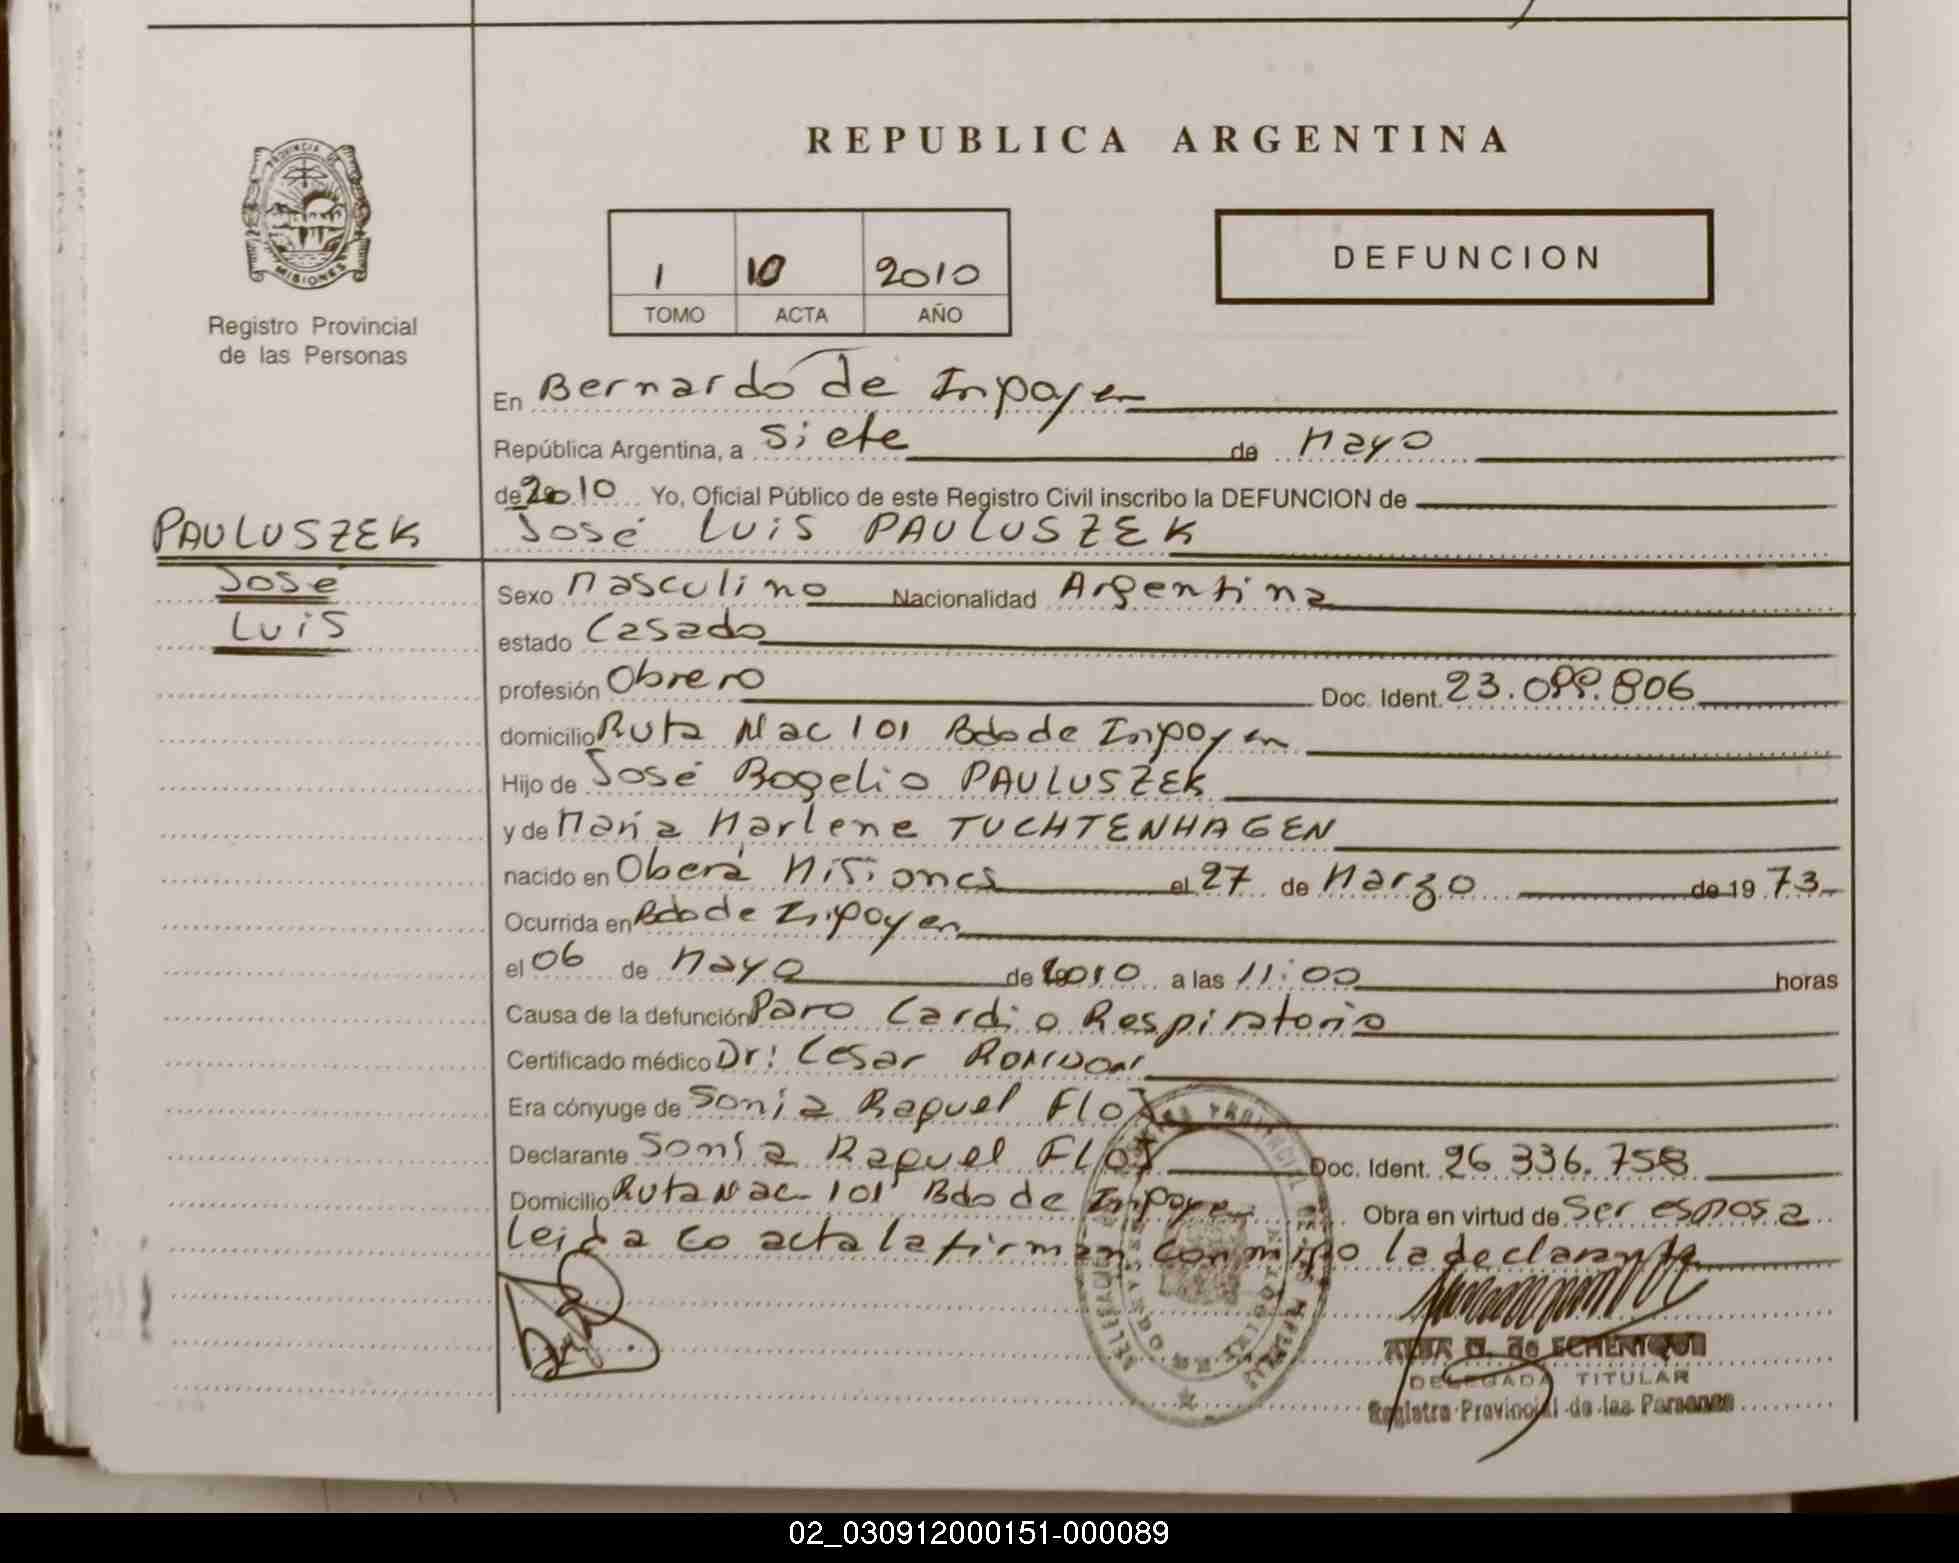 REPUBLICA ARGENTINA
PROVINCIA DE
MISIONES
Registro Provincial
de las Personas
1 10 2010
TOMO ACTA AÑO
DEFUNCION
En Bernardo de Irigoyen
República Argentina, a siete de Mayo
de 2010 Yo, Oficial Público de este Registro Civil inscribo la DEFUNCION de
José Luis PAULUSZEK
PAULUSZEK
José
Luis
Sexo Masculino Nacionalidad Argentina
estado Casado
profesión Obrero Doc. Ident. 23.099.806
domicilio Ruta Nac 101 Bdo de Irigoyen
Hijo de José Rogelio PAULUSZEK
y de María Marlene TUCHTENHAGEN
nacido en Oberá Misiones el 27 de Marzo de 1973
Ocurrida en Bdo de Irigoyen
el 06 de Mayo de 2010 a las 11:00 horas
Causa de la defunción Paro Cardio Respiratorio
Certificado médico Dr: Cesar
Era cónyuge de Sonia Raquel
Declarante Sonia Raquel Doc. Ident. 26.336.758
Domicilio Ruta Nac 101 Bdo de Irigoyen Obra en virtud de Ser esposa
Leida el acta la firman conmigo la declarante
ALBA de ECHENIQUE
DELEGADA TITULAR
Registro Provincial de las Personas
02_030912000151-000089